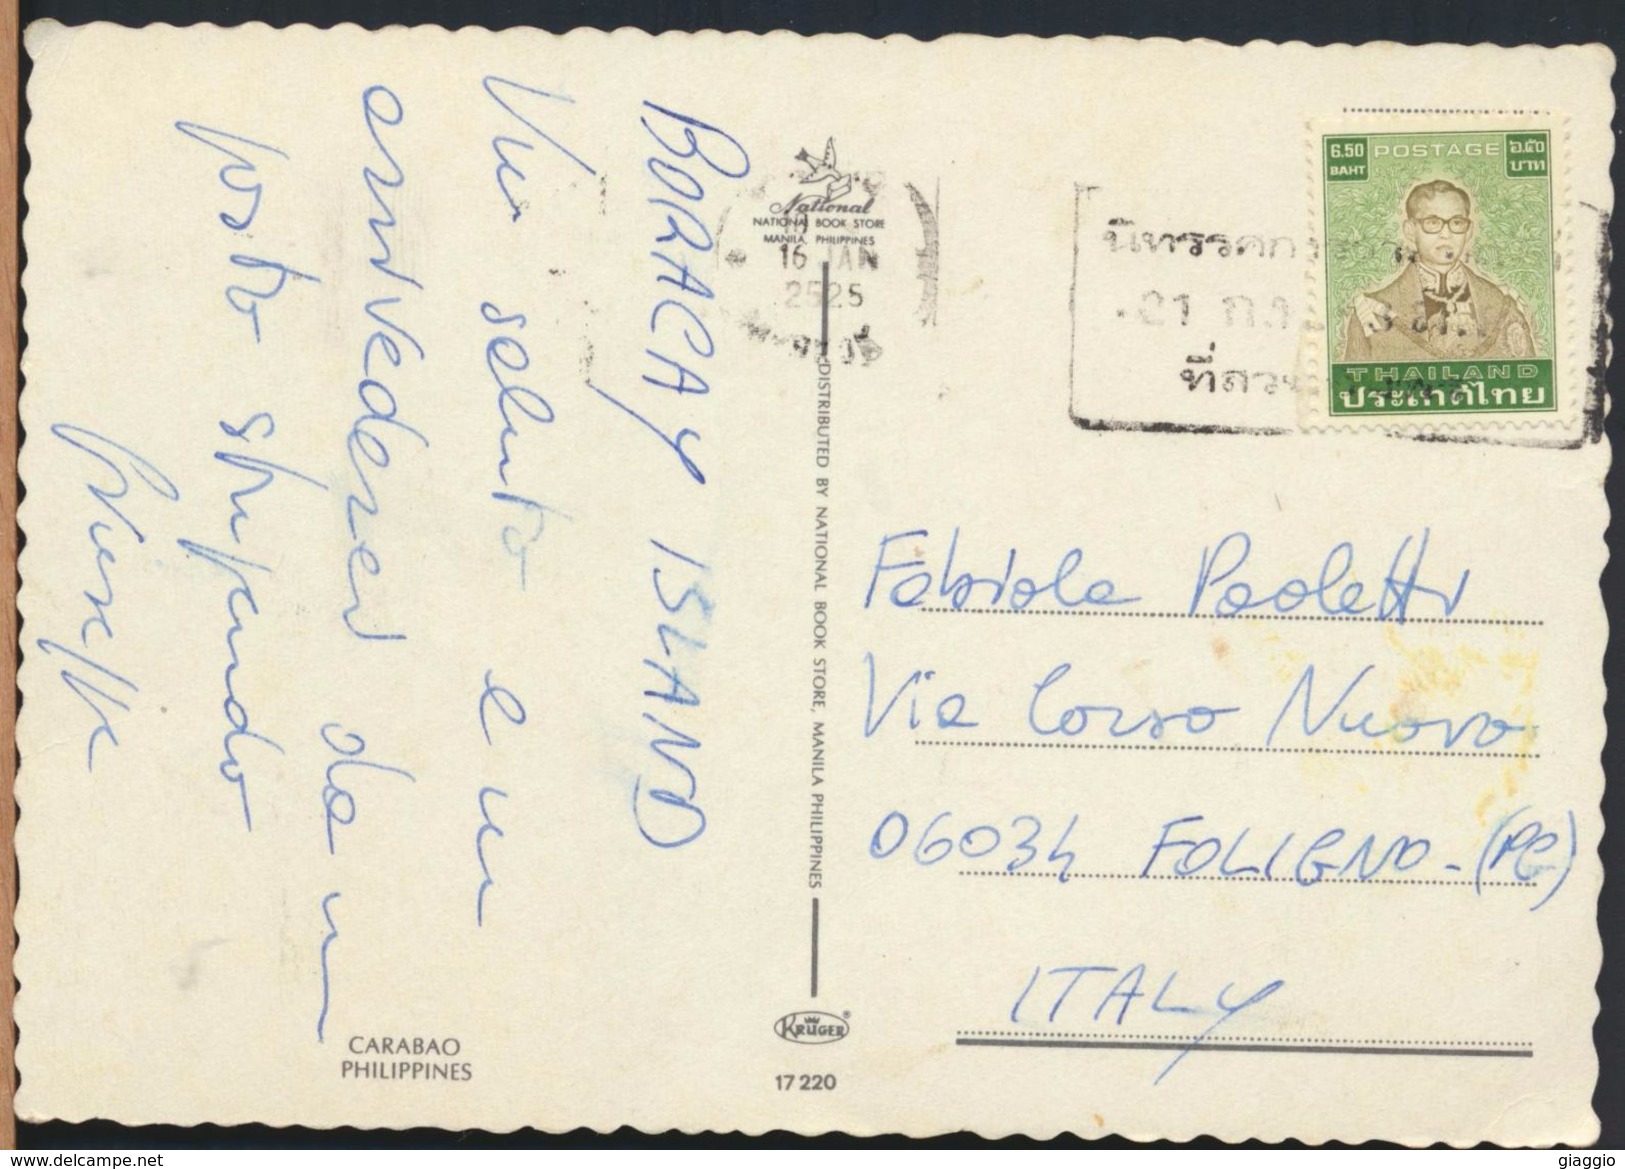 BORACAY ISLAND
Un saluto e un
arrivederci da un
posto stupendo
Giuseppe
CARABAO
PHILIPPINES
National
NATIONAL BOOK STORE
MANILA, PHILIPPINES
16 JAN
2525
DISTRIBUTED BY NATIONAL BOOK STORE, MANILA PHILIPPINES
KRÜGER®
17 220
6.50 POSTAGE ๖.๕๐
BAHT บาท
THAILAND
ประเทศไทย
นิทรรศการ
21 ก.ย.
Fabiola Paoletti
Via Corso Nuovo
06034 FOLIGNO-(PG)
ITALY
giaggio